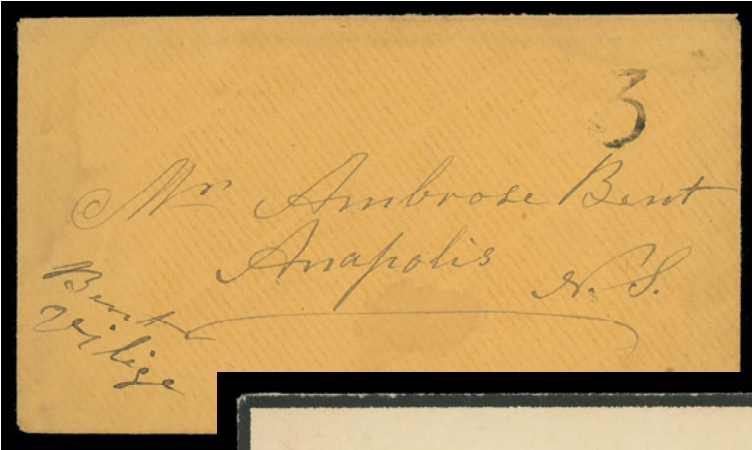 3
Mr Ambrose Bent
Anapolis N.S.
Bents
Vilige